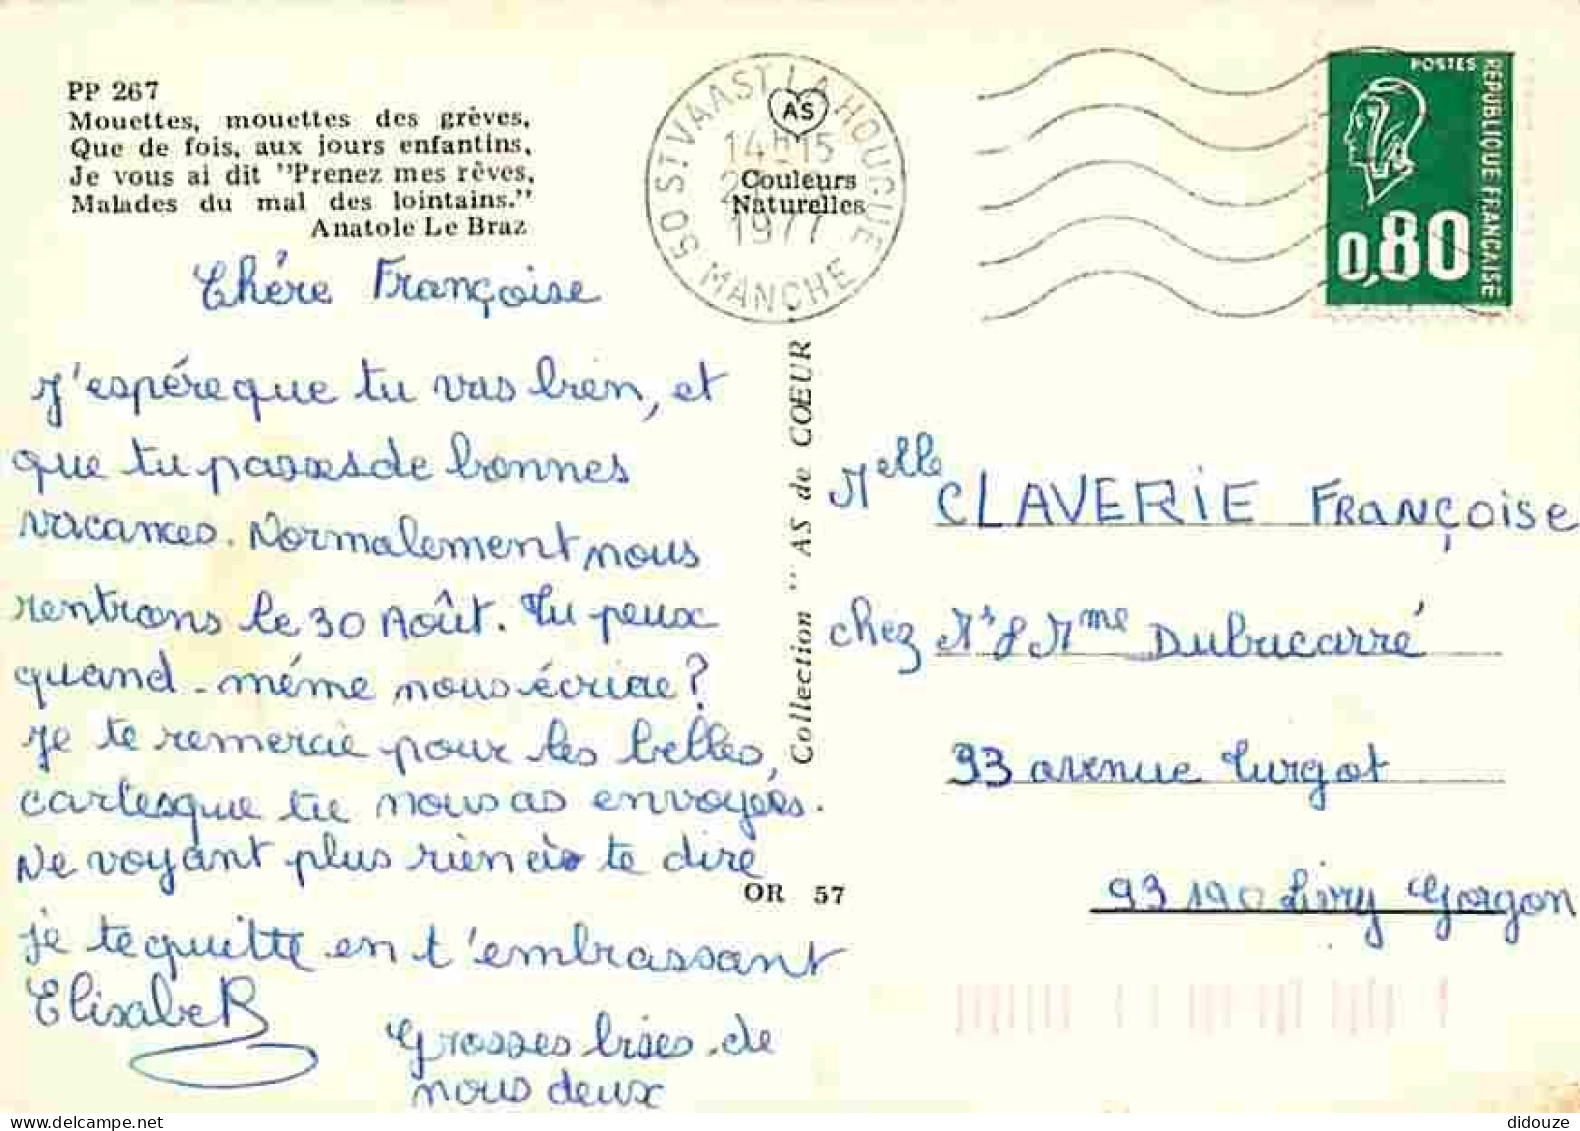 PP 267
Mouettes, mouettes des grèves,
Que de fois, aux jours enfantins,
Je vous ai dit "Prenez mes rêves,
Malades du mal des lointains."
Anatole Le Braz
Chére Françoise
J'espére que tu vas bien, et
que tu passes de bonnes
vacances. Normalement nous
rentrons le 30 Août. Tu peux
quand-même nous écrire?
Je te remercie pour les belles,
cartes que tu nous as envoyées.
Ne voyant plus rien à te dire
je te quitte en t'embrassant
Elisabeth
Grosses bises de
nous deux
50 ST VAAST LA HOUGUE
14H15
1977
MANCHE
AS
Couleurs
Naturelles
Collection "AS de COEUR
OR 57
POSTES
REPUBLIQUE FRANCAISE
0,80
Melle CLAVERIE FRANÇOISE
chez Mr & Mme Dubucarré
93 avenue Turgot
93190 Livry Gargan
didouze